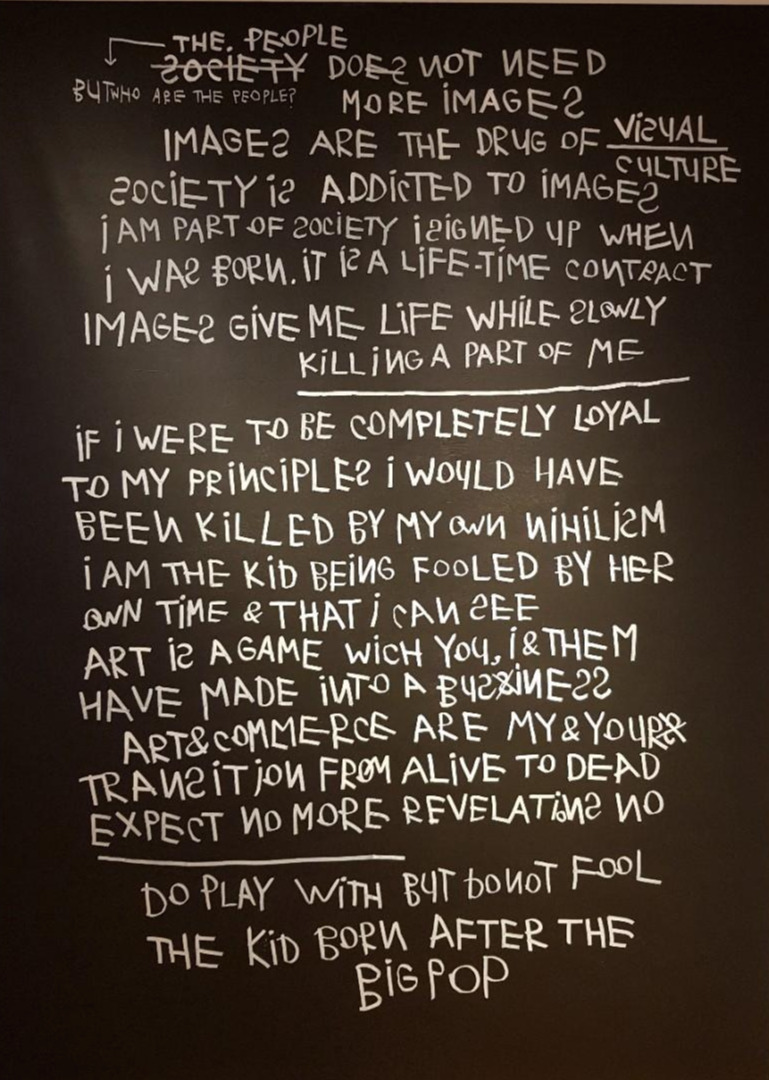 THE. PEOPLE
SOCIETY DOES NOT NEED
BUT WHO ARE THE PEOPLE? MORE IMAGES
IMAGES ARE THE DRUG OF VISUAL
CULTURE
SOCIETY IS ADDICTED TO IMAGES
I AM PART OF SOCIETY I SIGNED UP WHEN
I WAS BORN. IT IS A LIFE-TIME CONTRACT
IMAGES GIVE ME LIFE WHILE SLOWLY
KILLING A PART OF ME
IF I WERE TO BE COMPLETELY LOYAL
TO MY PRINCIPLES I WOULD HAVE
BEEN KILLED BY MY OWN NIHILISM
I AM THE KID BEING FOOLED BY HER
OWN TIME & THAT I CAN SEE
ART IS A GAME WICH YOU, I & THEM
HAVE MADE INTO A BUSSINESS
ART&COMMERCE ARE MY & YOURS
TRANSITION FROM ALIVE TO DEAD
EXPECT NO MORE REVELATINS NO
DO PLAY WITH BUT DO NOT FOOL
THE KID BORN AFTER THE
BIG POP